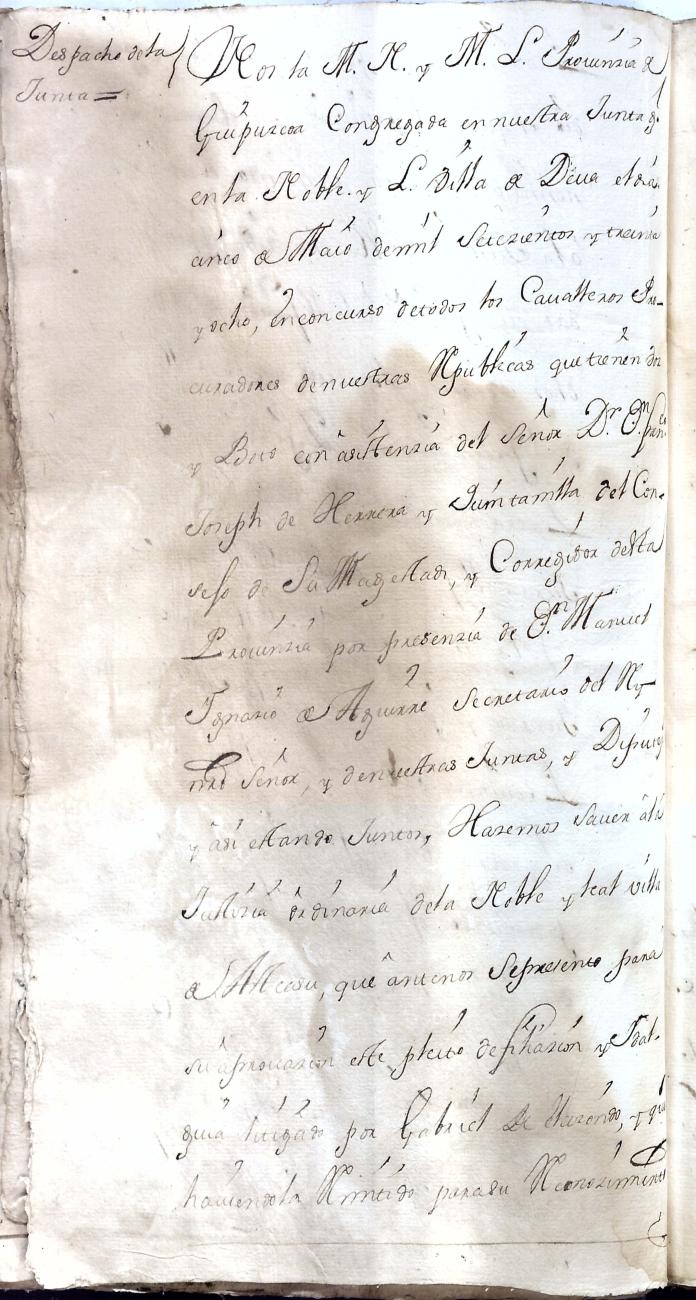 Despacho de la
Junta =
Nos la M. N. y M. L. Provinzia de
Guipuzcoa Congregada en nuestra Junta g.
en la Noble y L. Villa de Deva el dia
cinco de Maio de mil setezientos y treinta
y ocho, en concurso de todos los Cavalleros Pro-
curadores de nuestras Republicas que tienen voz
y Boto con asistenzia del señor Dr. Dn. Fran.co
Joseph de Herrera y Quintanilla del Con-
sejo de Su Magestad, y Corregidor desta
Provinzia por presenzia de Dn. Manuel
Ignazio de Aguirre Secretario del Rey
nro Señor, y de nuestras Juntas, y Diput.
y asi estando Juntos, Hazemos saver a la
Justizia ordinaria de la Noble y leal villa
de, que ante nos se presento para
su aprovazion este pleito de filiazion y Idal-
guia litigado por Gabriel de, y que
haviendola Remitido para su Reconozimiento